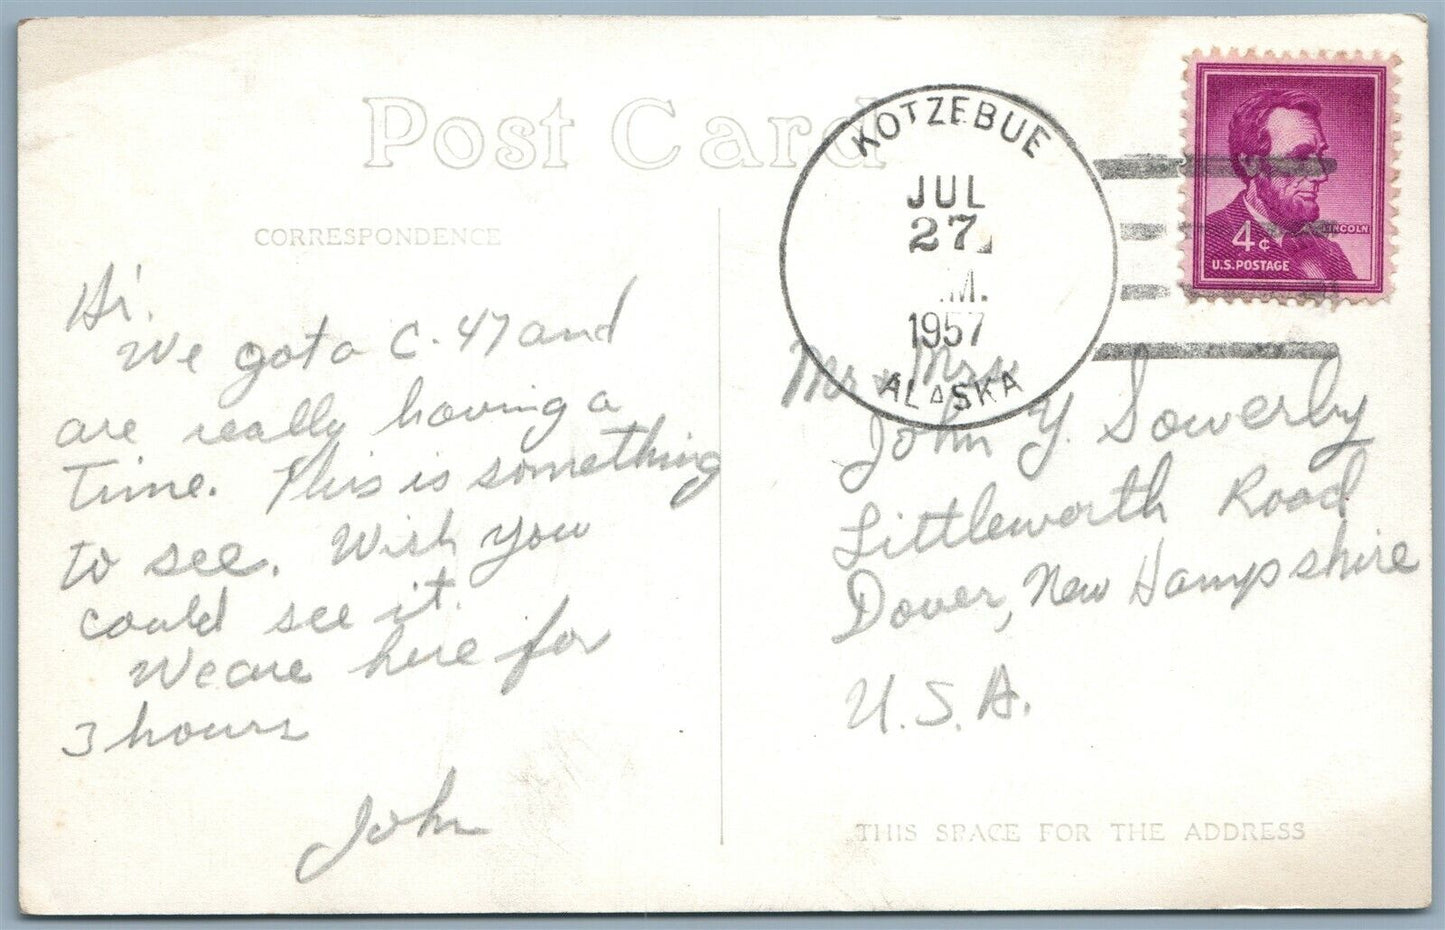 Post Card
CORRESPONDENCE
Hi.
We got a C-47 and
are really having a
time. This is something
to see. Wish you
could see it.
We are here for
3 hours
John
KOTZEBUE
JUL
27
.M.
1957
ALASKA
4¢
LINCOLN
U.S. POSTAGE
Mr & Mrs
John Y. Sowerby
Littleworth Road
Dover, New Hampshire
U.S.A.
THIS SPACE FOR THE ADDRESS